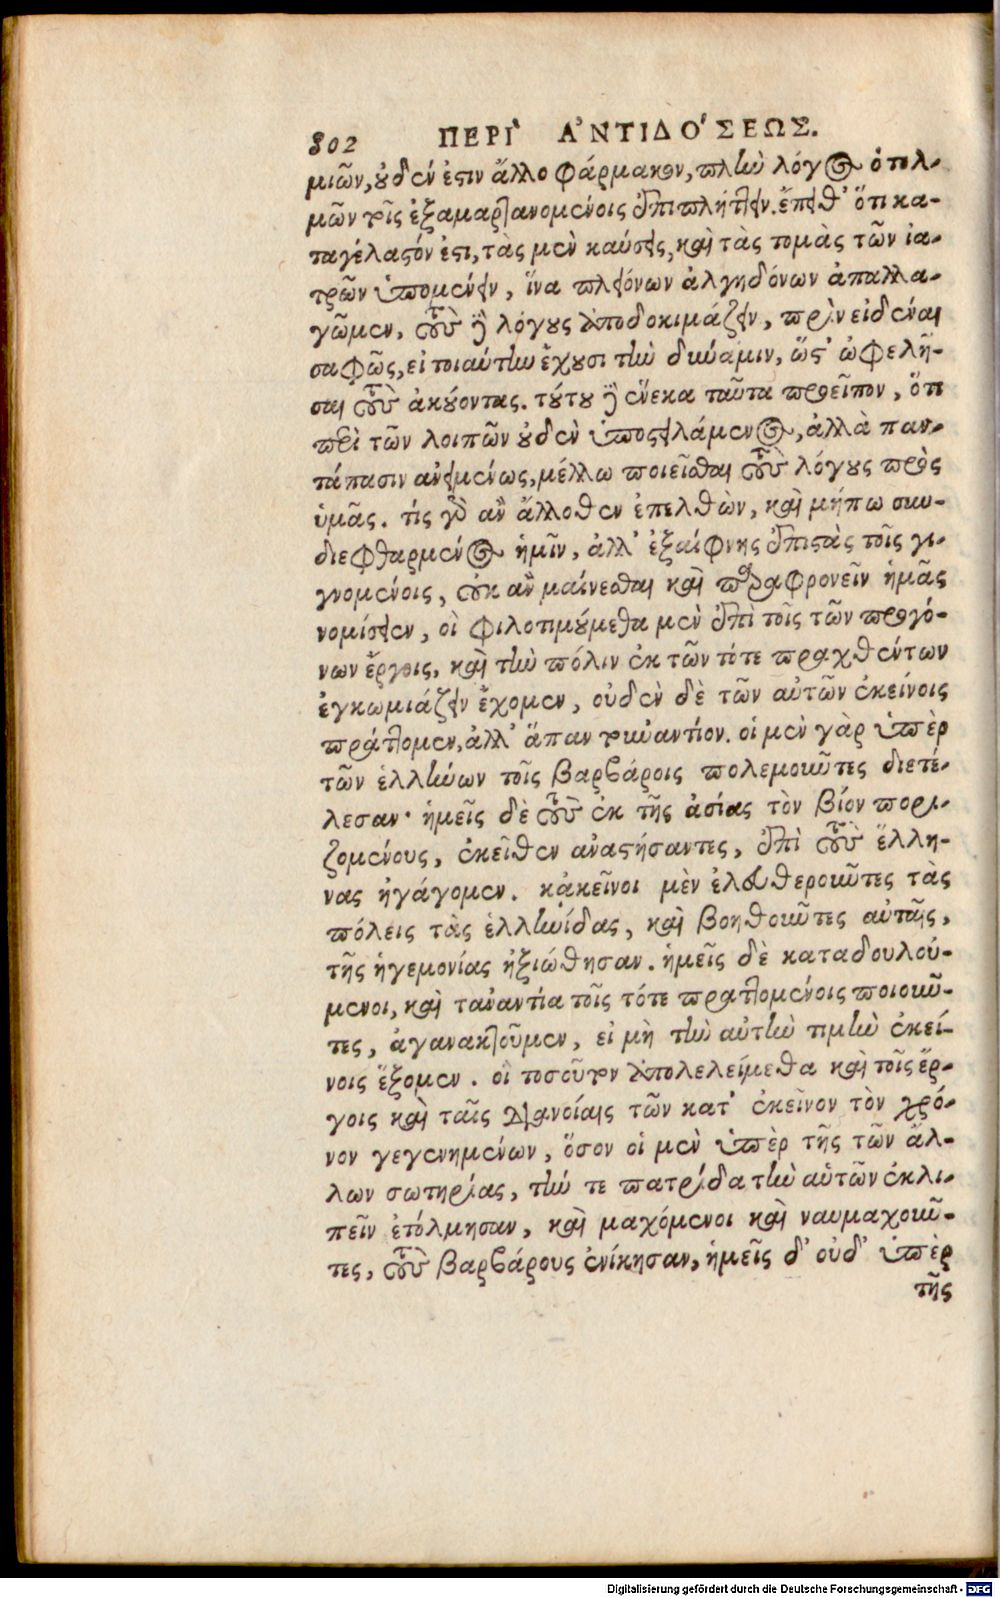 302 ΠΕΡΙ` ἈΝΤΙΔΟ´ΣΕΩΣ.
μιῶν, οὐδέν ἐστιν ἄλλο φάρμακον, πλὴν λόγος ὁ τολ-
μῶν τοῖς ἐξαμαρτανομένοις ἐπιπλήττειν. ἔπειθ' ὅτι κα-
ταγέλαστόν ἐστι, τὰς μὲν καύσεις, καὶ τὰς τομὰς τῶν ἰα-
τρῶν ὑπομένειν, ἵνα πλειόνων ἀλγηδόνων ἀπαλλα-
γῶμεν, τοὺς δὲ λόγους ἀποδοκιμάζειν, πρὶν εἰδέναι
σαφῶς, εἰ τοιαύτην ἔχουσι τὴν δύναμιν, ὥστ' ὠφελῆ-
σαι τοὺς ἀκούοντας. τούτου δὲ ἕνεκα ταῦτα προεῖπον, ὅτι
περὶ τῶν λοιπῶν οὐδὲν ὑποστειλάμενος, ἀλλὰ παν-
τάπασιν ἀνειμένως, μέλλω ποιεῖσθαι τοὺς λόγους πρὸς
ὑμᾶς. τίς γὰρ ἂν ἄλλοθεν ἐπελθὼν, καὶ μήπω συν-
διεφθαρμένος ἡμῖν, ἀλλ' ἐξαίφνης ἐπιστὰς τοῖς γι-
γνομένοις, οὐκ ἂν μαίνεσθαι καὶ παραφρονεῖν ἡμᾶς
νομίσειεν, οἳ φιλοτιμούμεθα μὲν ἐπὶ τοῖς τῶν προγό-
νων ἔργοις, καὶ τὴν πόλιν ἐκ τῶν τότε πραχθέντων
ἐγκωμιάζειν ἔχομεν, οὐδὲν δὲ τῶν αὐτῶν ἐκείνοις
πράττομεν, ἀλλ' ἅπαν τοὐναντίον. οἱ μὲν γὰρ ὑπὲρ
τῶν ἑλλήνων τοῖς βαρβάροις πολεμοῦντες διετέ-
λεσαν· ἡμεῖς δὲ τοὺς ἐκ τῆς ἀσίας τὸν βίον πορι-
ζομένους, ἐκεῖθεν ἀναστήσαντες, ἐπὶ τοὺς ἕλλη-
νας ἠγάγομεν. κἀκεῖνοι μὲν ἐλευθεροῦντες τὰς
πόλεις τὰς ἑλληνίδας, καὶ βοηθοῦντες αὐταῖς,
τῆς ἡγεμονίας ἠξιώθησαν. ἡμεῖς δὲ καταδουλού-
μενοι, καὶ τἀναντία τοῖς τότε πραττομένοις ποιοῦν-
τες, ἀγανακτοῦμεν, εἰ μὴ τὴν αὐτὴν τιμὴν ἐκεί-
νοις ἕξομεν. οἳ τοσοῦτον ἀπολελείμεθα καὶ τοῖς ἔρ-
γοις καὶ ταῖς διανοίαις τῶν κατ' ἐκεῖνον τὸν χρό-
νον γεγενημένων, ὅσον οἱ μὲν ὑπὲρ τῆς τῶν ἄλ-
λων σωτηρίας, τήν τε πατρίδα τὴν αὑτῶν ἐκλι-
πεῖν ἐτόλμησαν, καὶ μαχόμενοι καὶ ναυμαχοῦν-
τες, τοὺς βαρβάρους ἐνίκησαν, ἡμεῖς δ' οὐδ' ὑπὲρ
τῆς
Digitalisierung gefördert durch die Deutsche Forschungsgemeinschaft - DFG